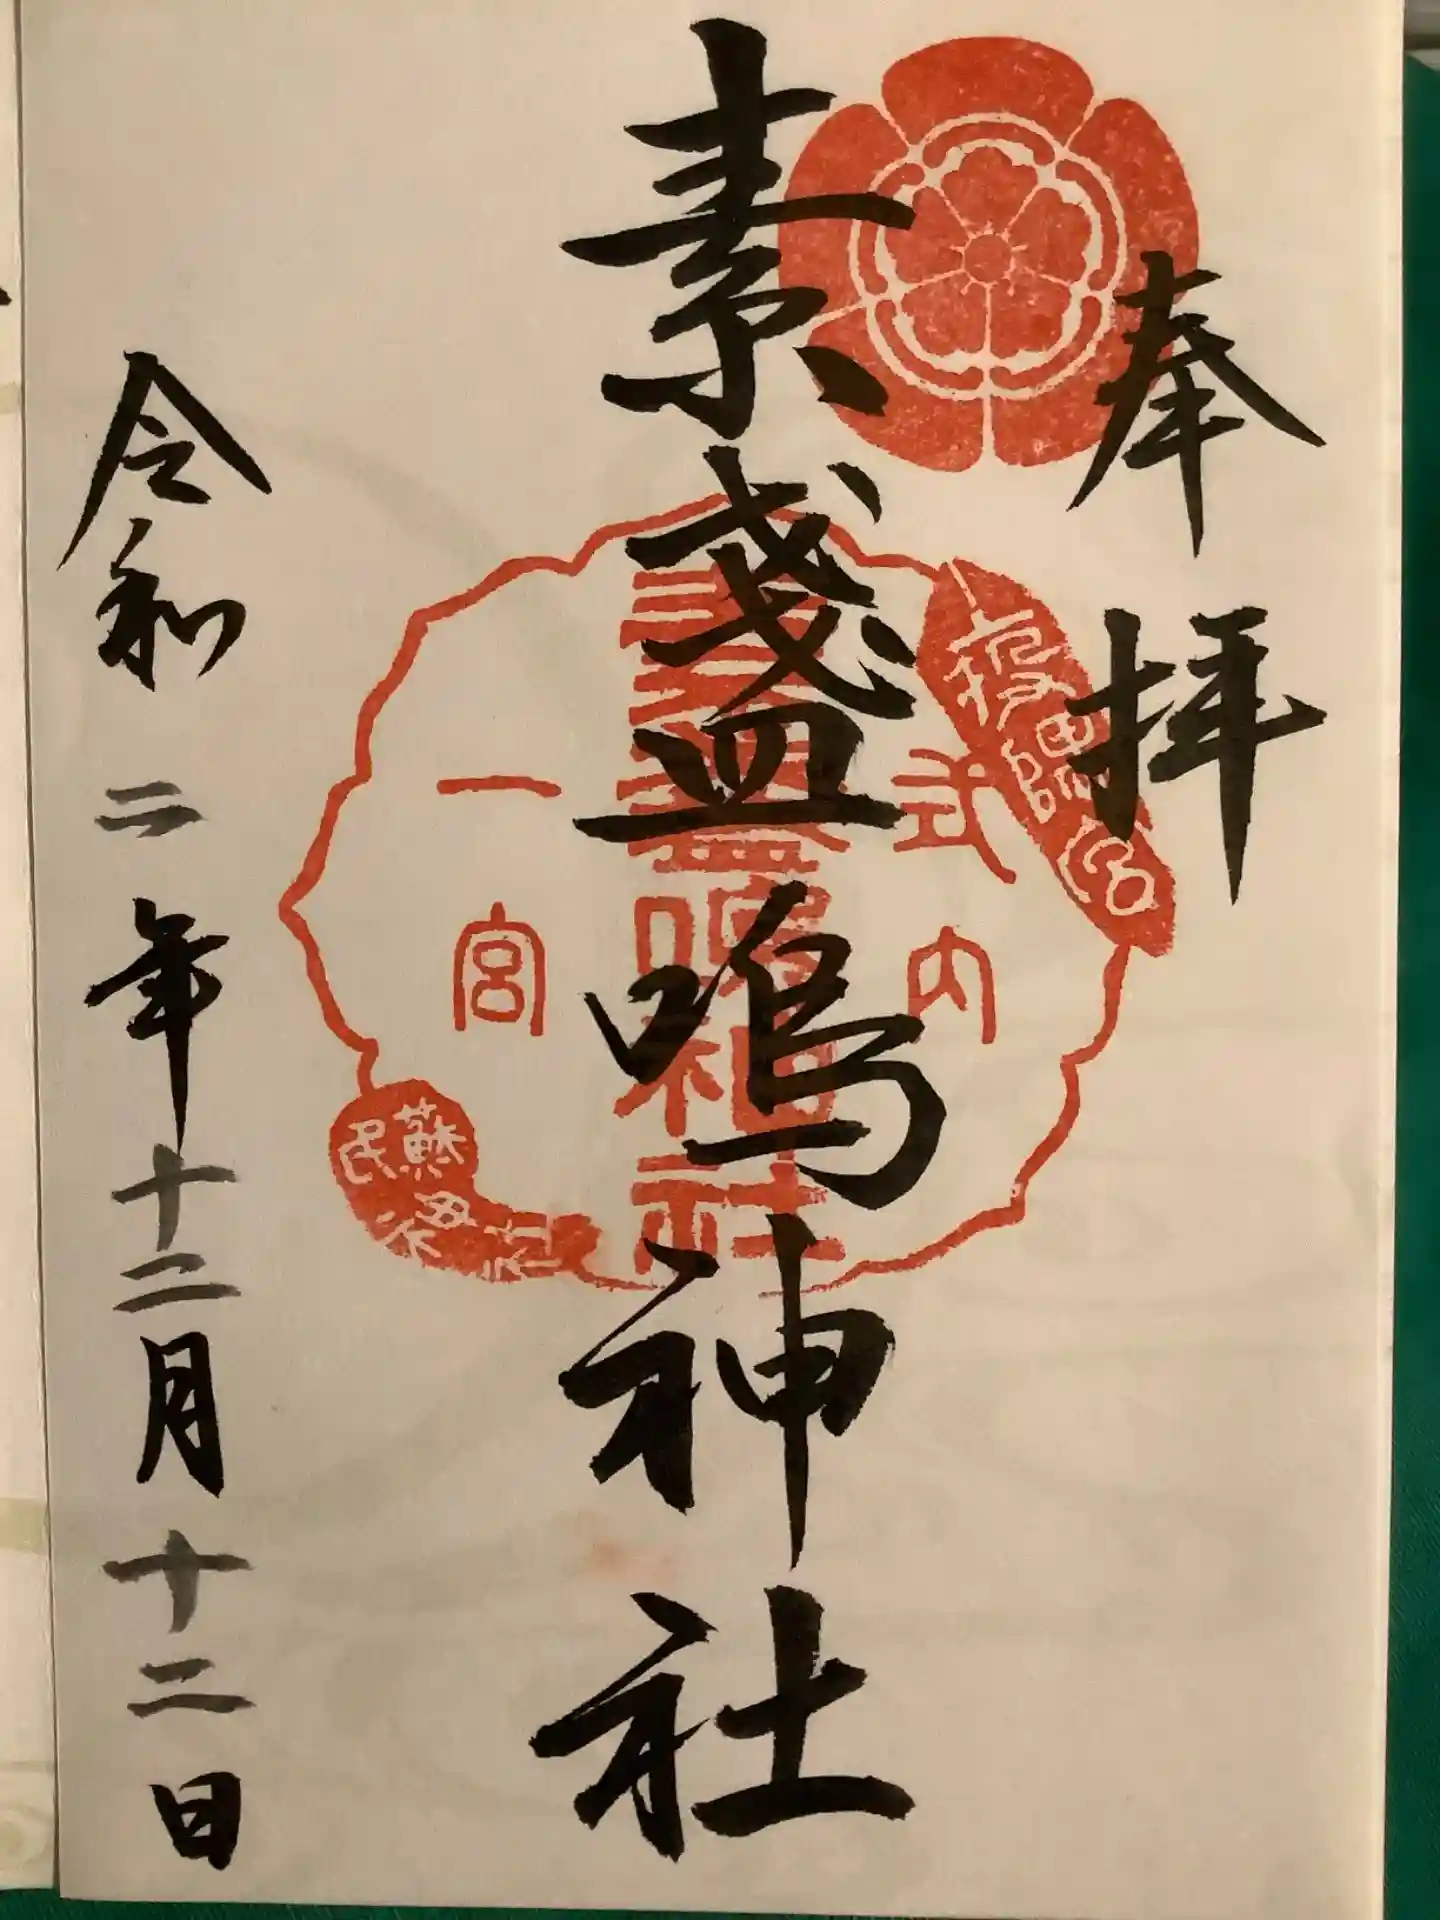 奉拝
素盞嗚神社
令和二年十二月十二日
式内
素盞嗚神社
一宮
蘇民将来